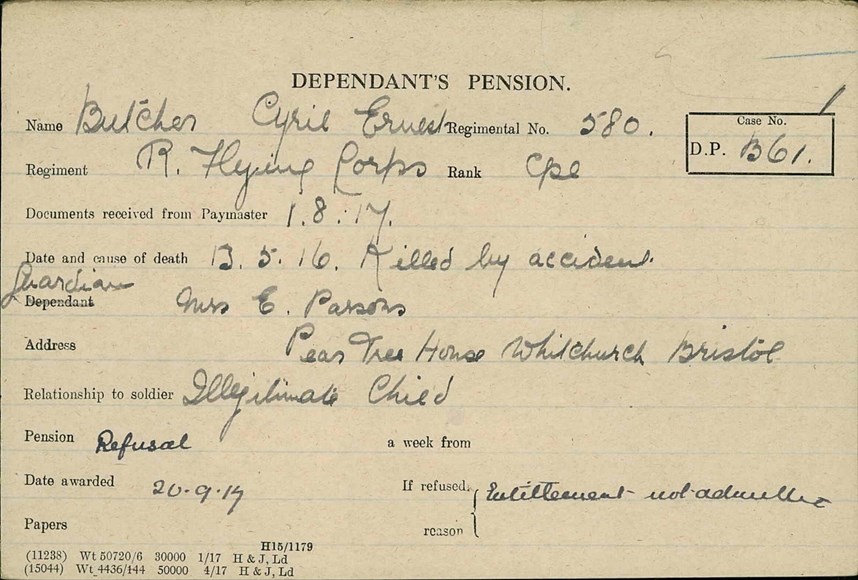 DEPENDANT'S PENSION.
Name Butcher Cyril Ernest Regimental No. 580.
Case No. 1
D.P. B61.
Regiment R. Flying Corps Rank Cpl
Documents received from Paymaster 1.8.17.
Date and cause of death 13.5.16. Killed by accident.
Guardian
Dependant Mrs E. Parsons
Address Pear Tree House Whitchurch Bristol
Relationship to soldier Illegitimate Child
Pension Refusal a week from
Date awarded 20-9-17 If refused, reason Entitlement not admitted
Papers
H15/1179
(11238) Wt 50720/6 30000 1/17 H & J, Ld
(15044) Wt 4436/144 50000 4/17 H & J, Ld